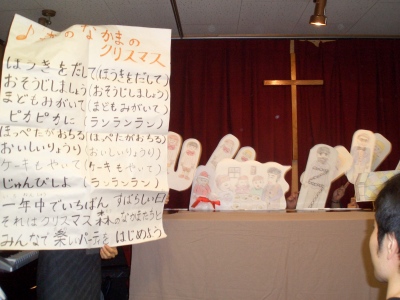 ♪森のなかまの
クリスマス
ほうきをだして(ほうきをだして)
おそうじしましょう(おそうじしましょう)
まどもみがいて(まどもみがいて)
ピカピカに(ランランラン)
ほっぺたがおちる(ほっぺたがおちる)
おいしいりょうり(おいしいりょうり)
ケーキもやいて(ケーキもやいて)
じゅんびしよ(ランランラン)
一年中でいちばんすばらしい日
それはクリスマス森のなかまたちと
みんなで楽しいパーティをはじめよう